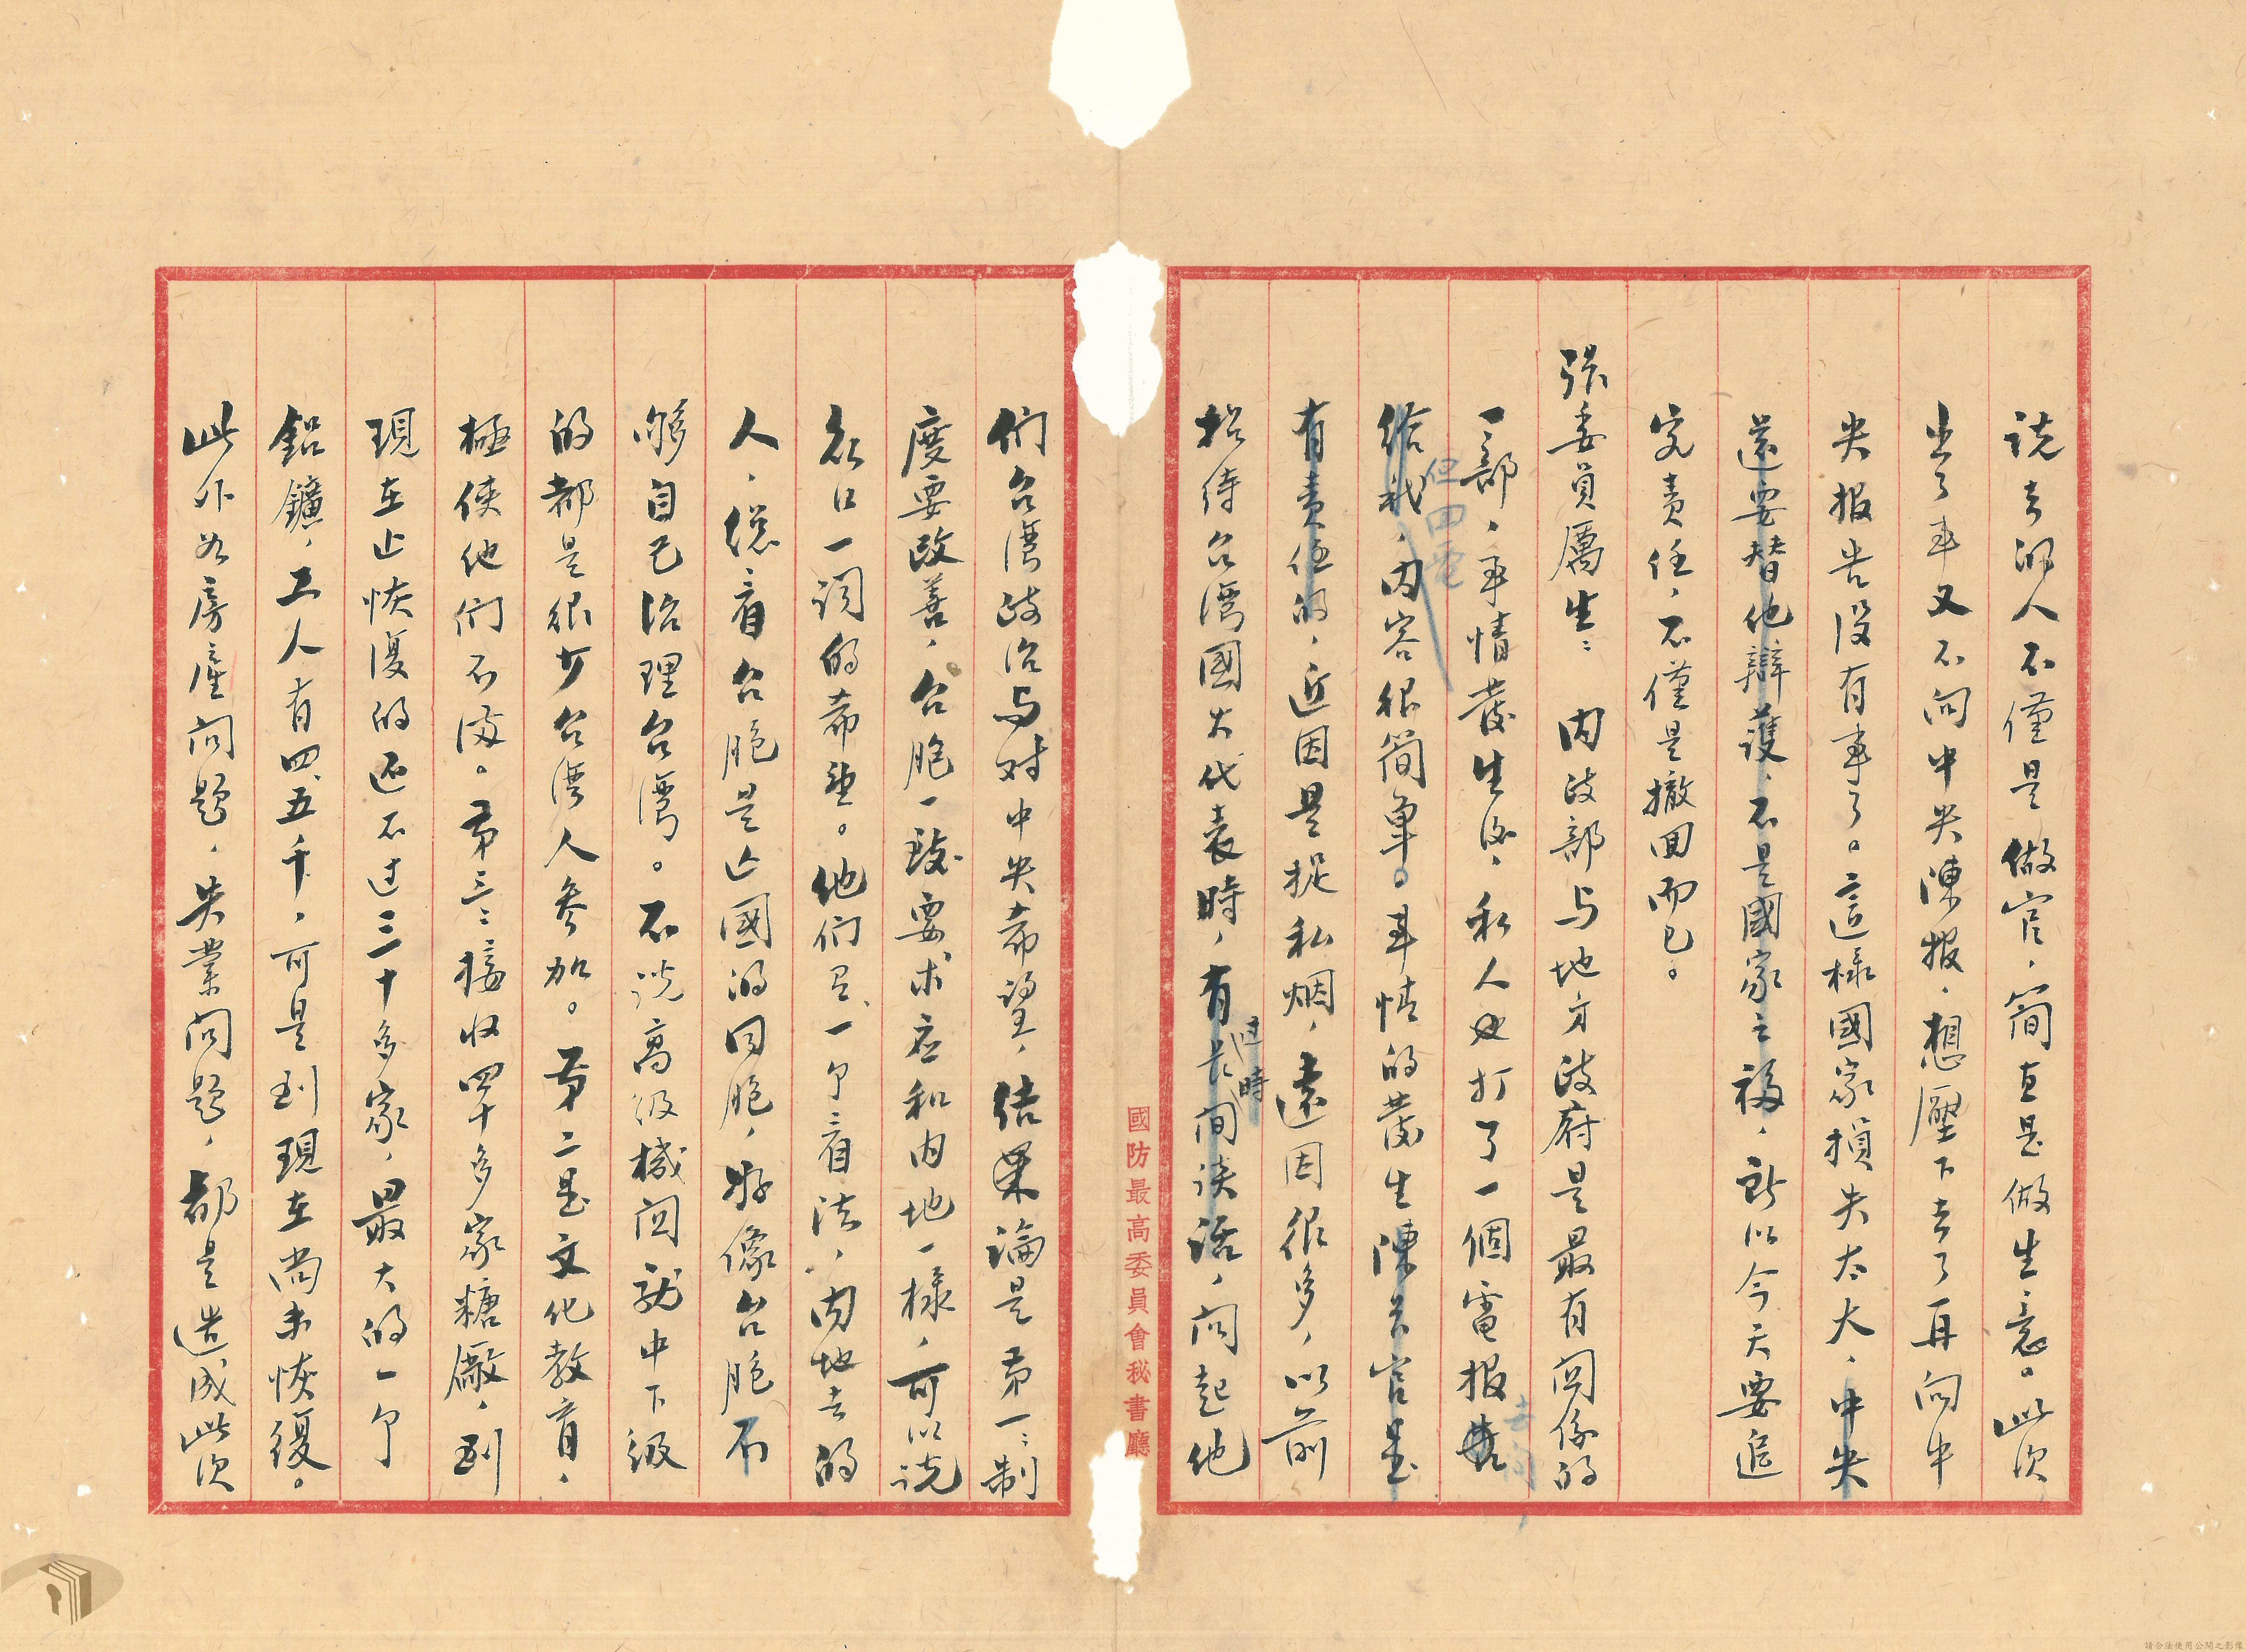 說去的人不僅是做官，簡直是做生意。此次
出了事又不向中央陳报，想壓下去了再向中
央报告没有事了。這樣國家損失太大，中央
還要替他辯護，不是國家之福，所以今天要追
究责任，不僅是撤回而已。
張委員厲生：内政部与地方政府是最有関係的
一部，事情發生後，私人打了一個電报去问
但回電
给我，内容很簡单。事情的發生陳長官是
有责任的，近因是捉私烟，遠因很多，以前
招待台湾國大代表時，有長时间谈话，问起他
过時
们台湾政治与对中央希望，结果論是第一：制
度要改善，台胞一致要求应和内地一樣，可以说
众口一词的希望。他们另一个看法，内地去的
人，總看台胞是亡國的同胞，好像台胞不
够自己治理台湾。不说高级機関就中下级
的都是很少台湾人参加。第二是文化教育，
極使他们不滿。第三：接收四十多家糖廠，到
現在止恢復的还不过三十多家，最大的一个
鋁鑛，工人有四、五千，可是到現在尚未恢復。
此外如房產问题，失業问题，都是造成此次
國防最高委員會秘書廳
請合法使用公開之影像